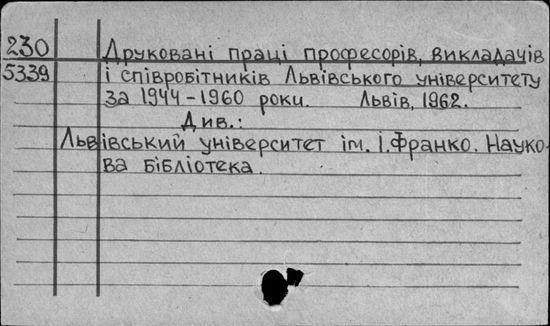 230 Друковані праці професорів, викладачів
5339 і співробітників Львівського університету
за 1944-1960 роки. Львів, 1962.
Див.:
Львівський університет ім. І. Франко. Науко-
ва бібліотека.